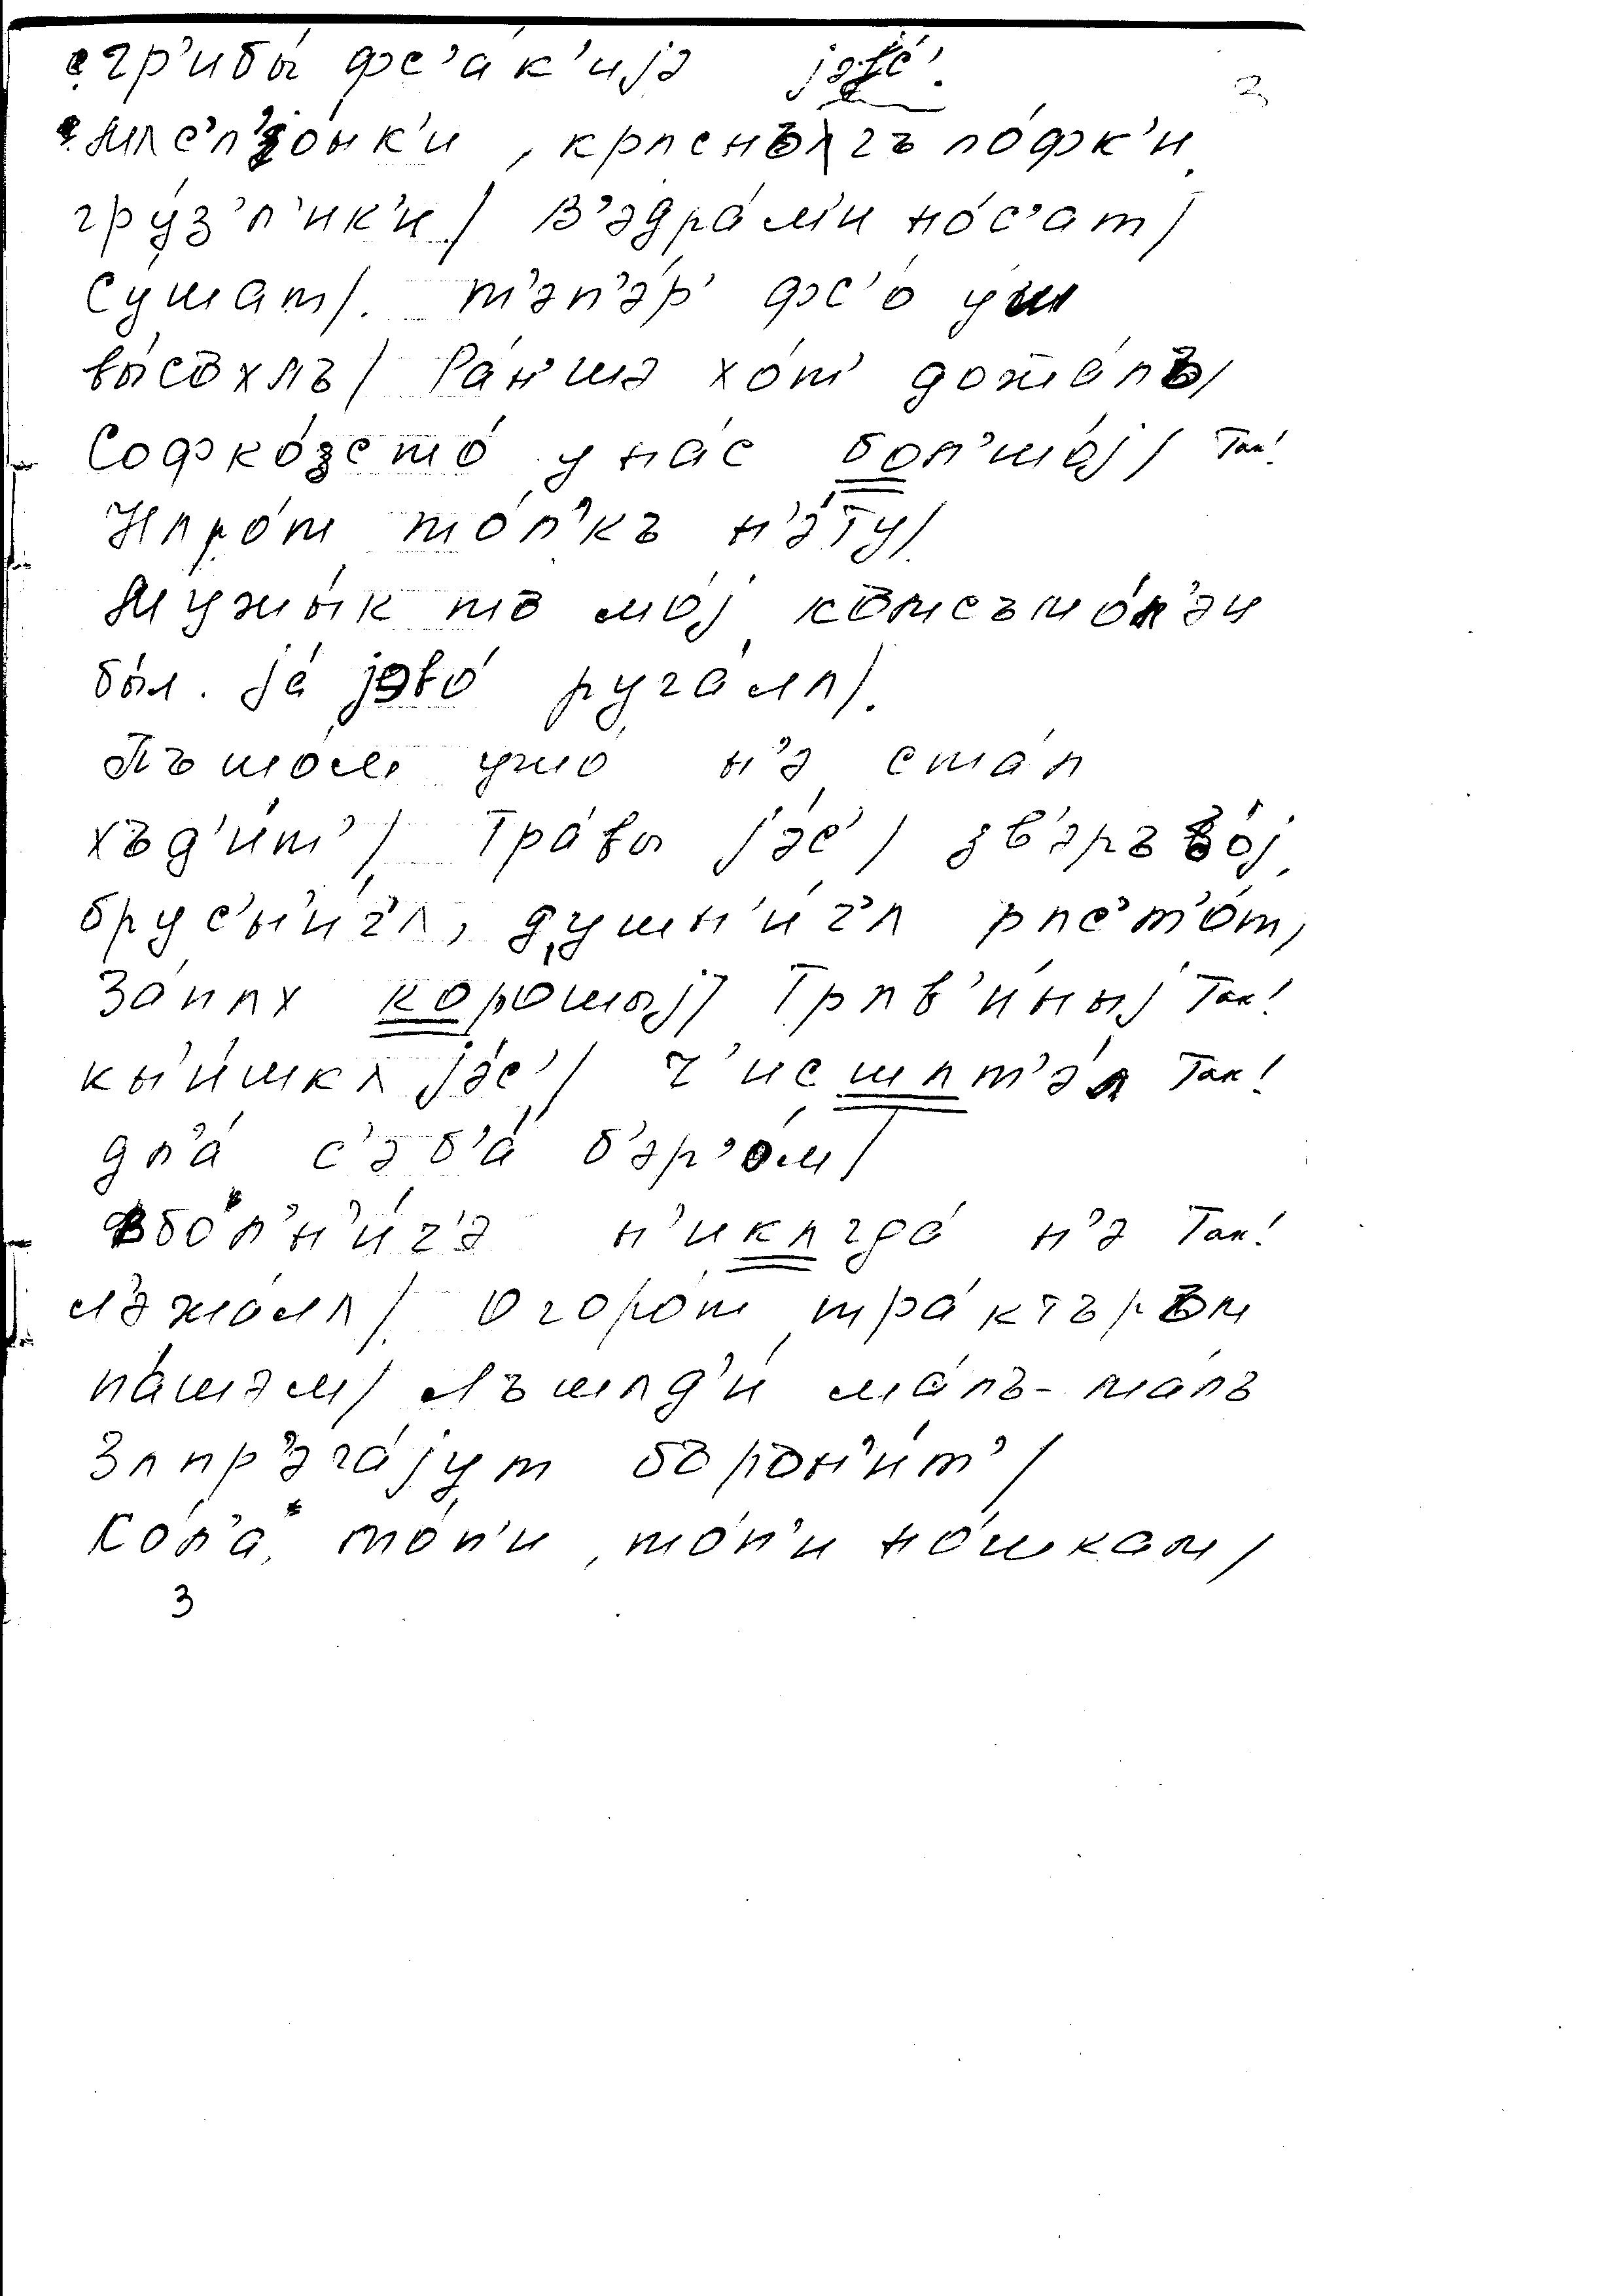 гр'ибы́ фс'а́к'ијэ јэс'. 3
мʌс'л'о́нк'и, крʌснъгъло́фк'и,
гру́з'л'ик'и/ в'эдра́м'и но́с'ат/
су́шат/. т'эп'э́р' фс'о́ уш
вы́сохлъ/ Ра́н'шэ хо́т' дожа́лъ/
Софко́зсто́ у на́с бол'шо́ј/ Так!
Нʌро́т то́л'къ н'э́ту/.
Мужы́к то мо́ј комсъмо́л'эц
бы́л. ја́ јэво́ руга́лʌ/.
Пъто́м ужо́ н'э ста́л
хъд'и́т'/ Тра́вы јэ́с'/ зв'эръбо́ј,
брус'н'и́г'ʌ, душн'и́г'ʌ рʌс'т'о́т,
За́пʌх коро́шыј/ Трʌв'и́ныј Так!
кн'и́шкʌ јэ́с'/ Ч'исшлт'э́л Так!
дл'а́ с'эб'а́ б'эр'о́м/
вбо́л'н'и́г'э н'икʌгда́ н'э Так!
л'эжа́лʌ/ Огоро́т тра́ктъръм
па́шэм/ Лъшʌд'и́ ма́лъ-малъ
Зʌпр'эга́јут борон'и́т'/
Ко́л'а, то́п'и, то́п'и но́шкам/
3